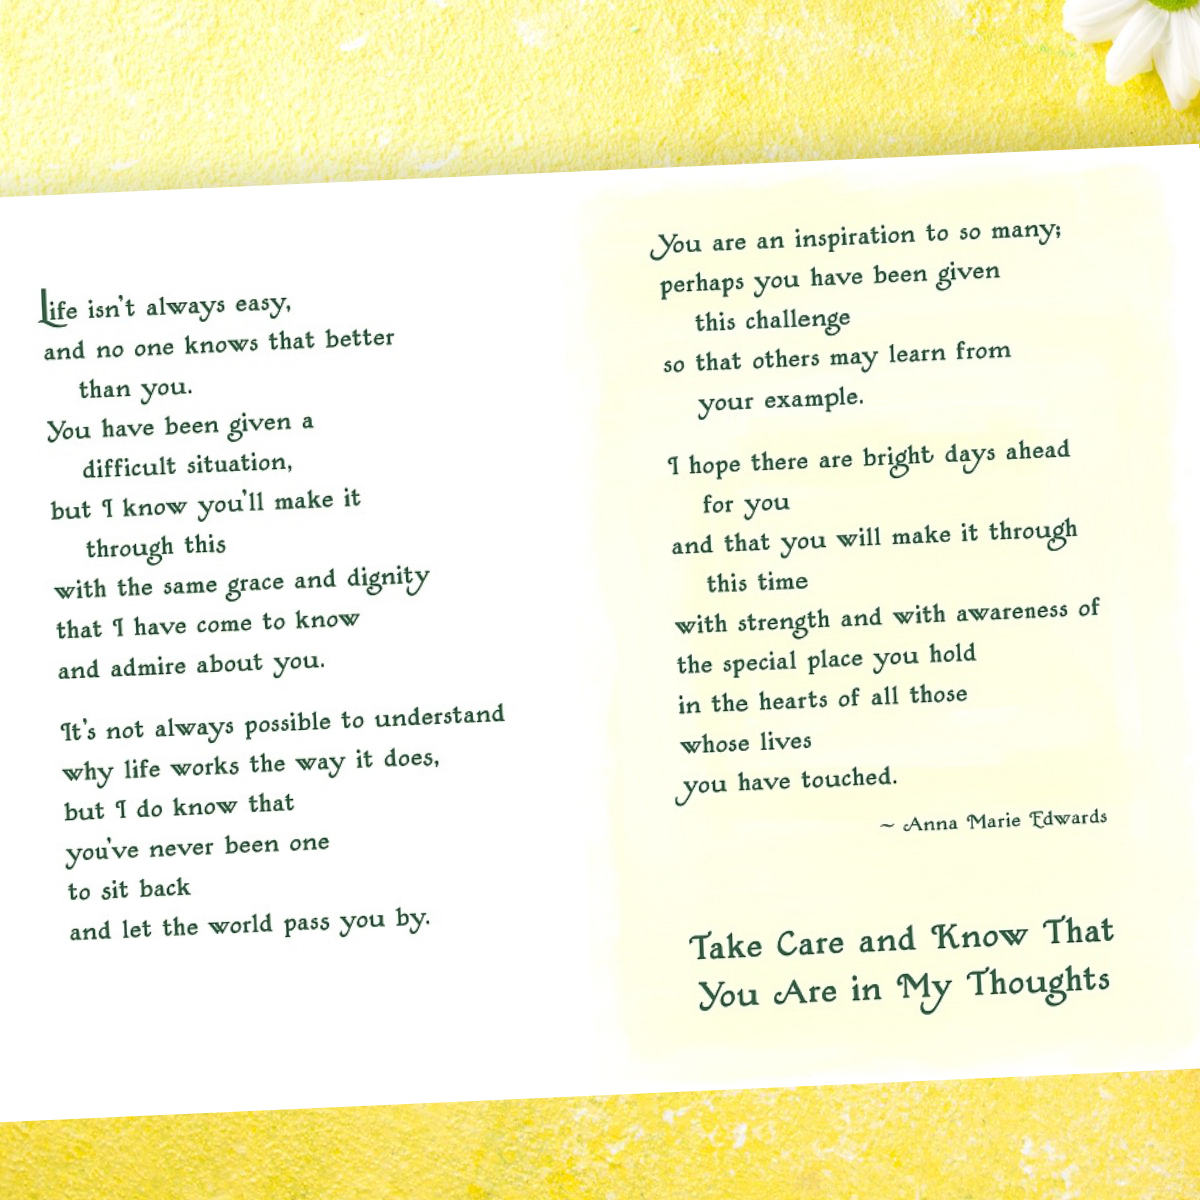 Life isn't always easy,
and no one knows that better
than you.
You have been given a
difficult situation,
but I know you'll make it
through this
with the same grace and dignity
that I have come to know
and admire about you.
It's not always possible to understand
why life works the way it does,
but I do know that
you've never been one
to sit back
and let the world pass you by.
You are an inspiration to so many;
perhaps you have been given
this challenge
so that others may learn from
your example.
I hope there are bright days ahead
for you
and that you will make it through
this time
with strength and with awareness of
the special place you hold
in the hearts of all those
whose lives
you have touched.
~ Anna Marie Edwards
Take Care and Know That
You Are in My Thoughts